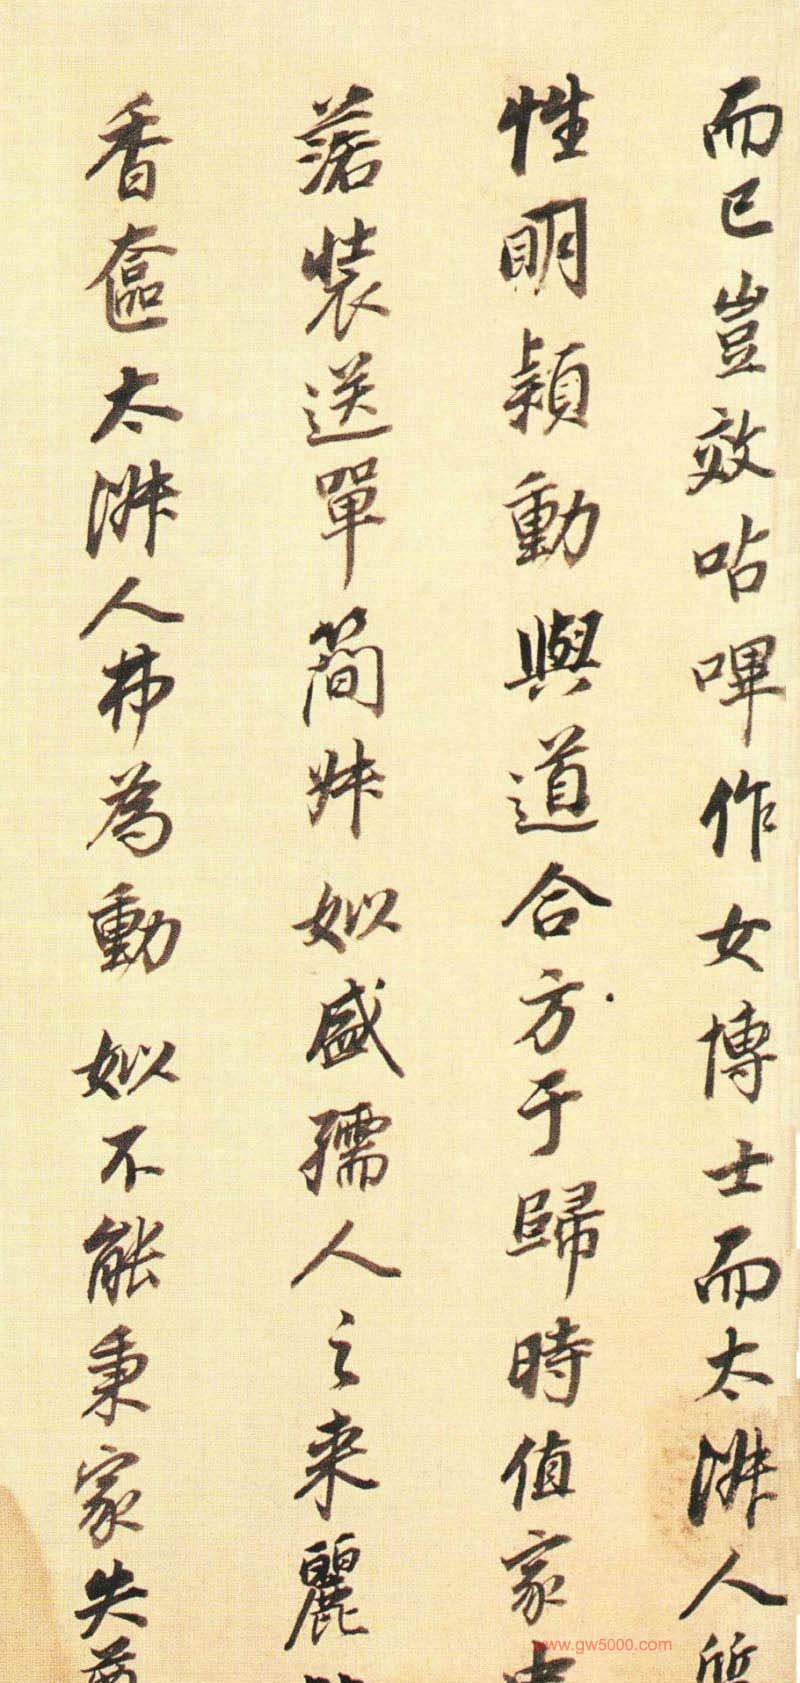 而已豈效呫嗶作女博士而太淑人質
性明穎動與道合方于歸時值家中
落裝送單簡娣姒盛孺人之来麗
香奩太淑人弗為動姒不能秉家失
www.gw5000.com